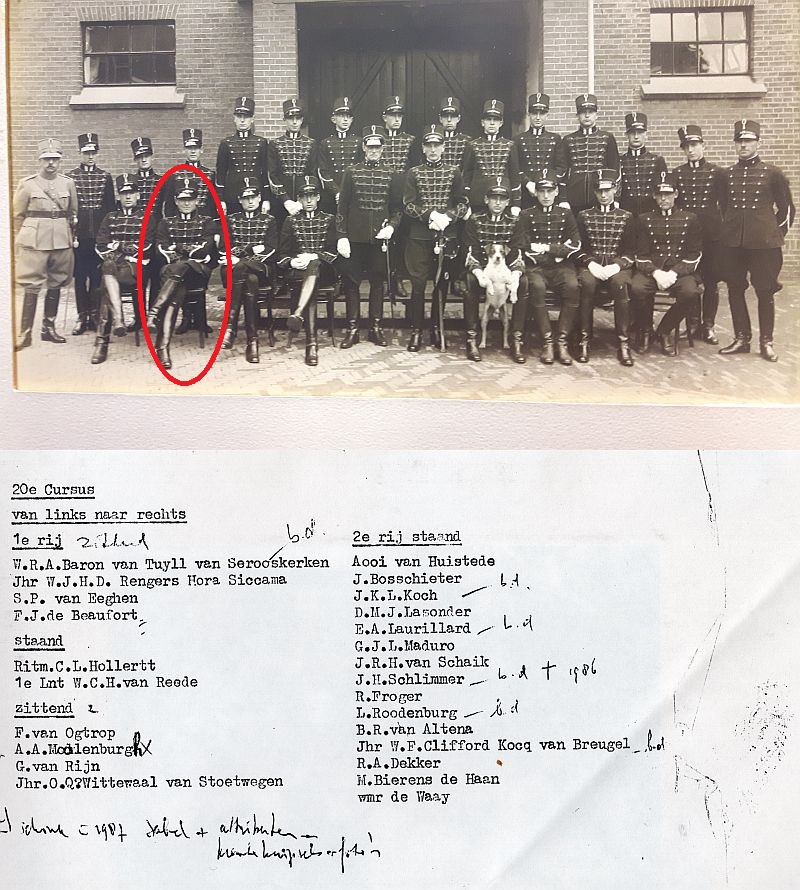 20e Cursus
van links naar rechts
1e rij zittend
b.d.
W.R.A.Baron van Tuyll van Serooskerken
Jhr W.J.H.D. Rengers Hora Siccama
S.P. van Eeghen
F.J.de Beaufort
staand
Ritm.C.L.Hollertt
1e Lnt W.C.H.van Reede
zittend
F.van Ogtrop
A.A.Moolenburgh
G.van Rijn
Jhr.O.Q?Wittewaal van Stoetwegen
2e rij staand
Aooi van Huistede
J.Bosschieter
J.K.L.Koch – b.d.
D.M.J.Lasonder
E.A.Laurillard – b.d
G.J.L.Maduro
J.R.H.van Schaik
J.H.Schlimmer – b.d + 1986
R.Froger
L.Roodenburg – b.d
B.R.van Altena
Jhr W.F.Clifford Kocq van Breugel – b.d
R.A.Dekker
M.Bierens de Haan
wmr de Waay
1987 sabel + attributen –